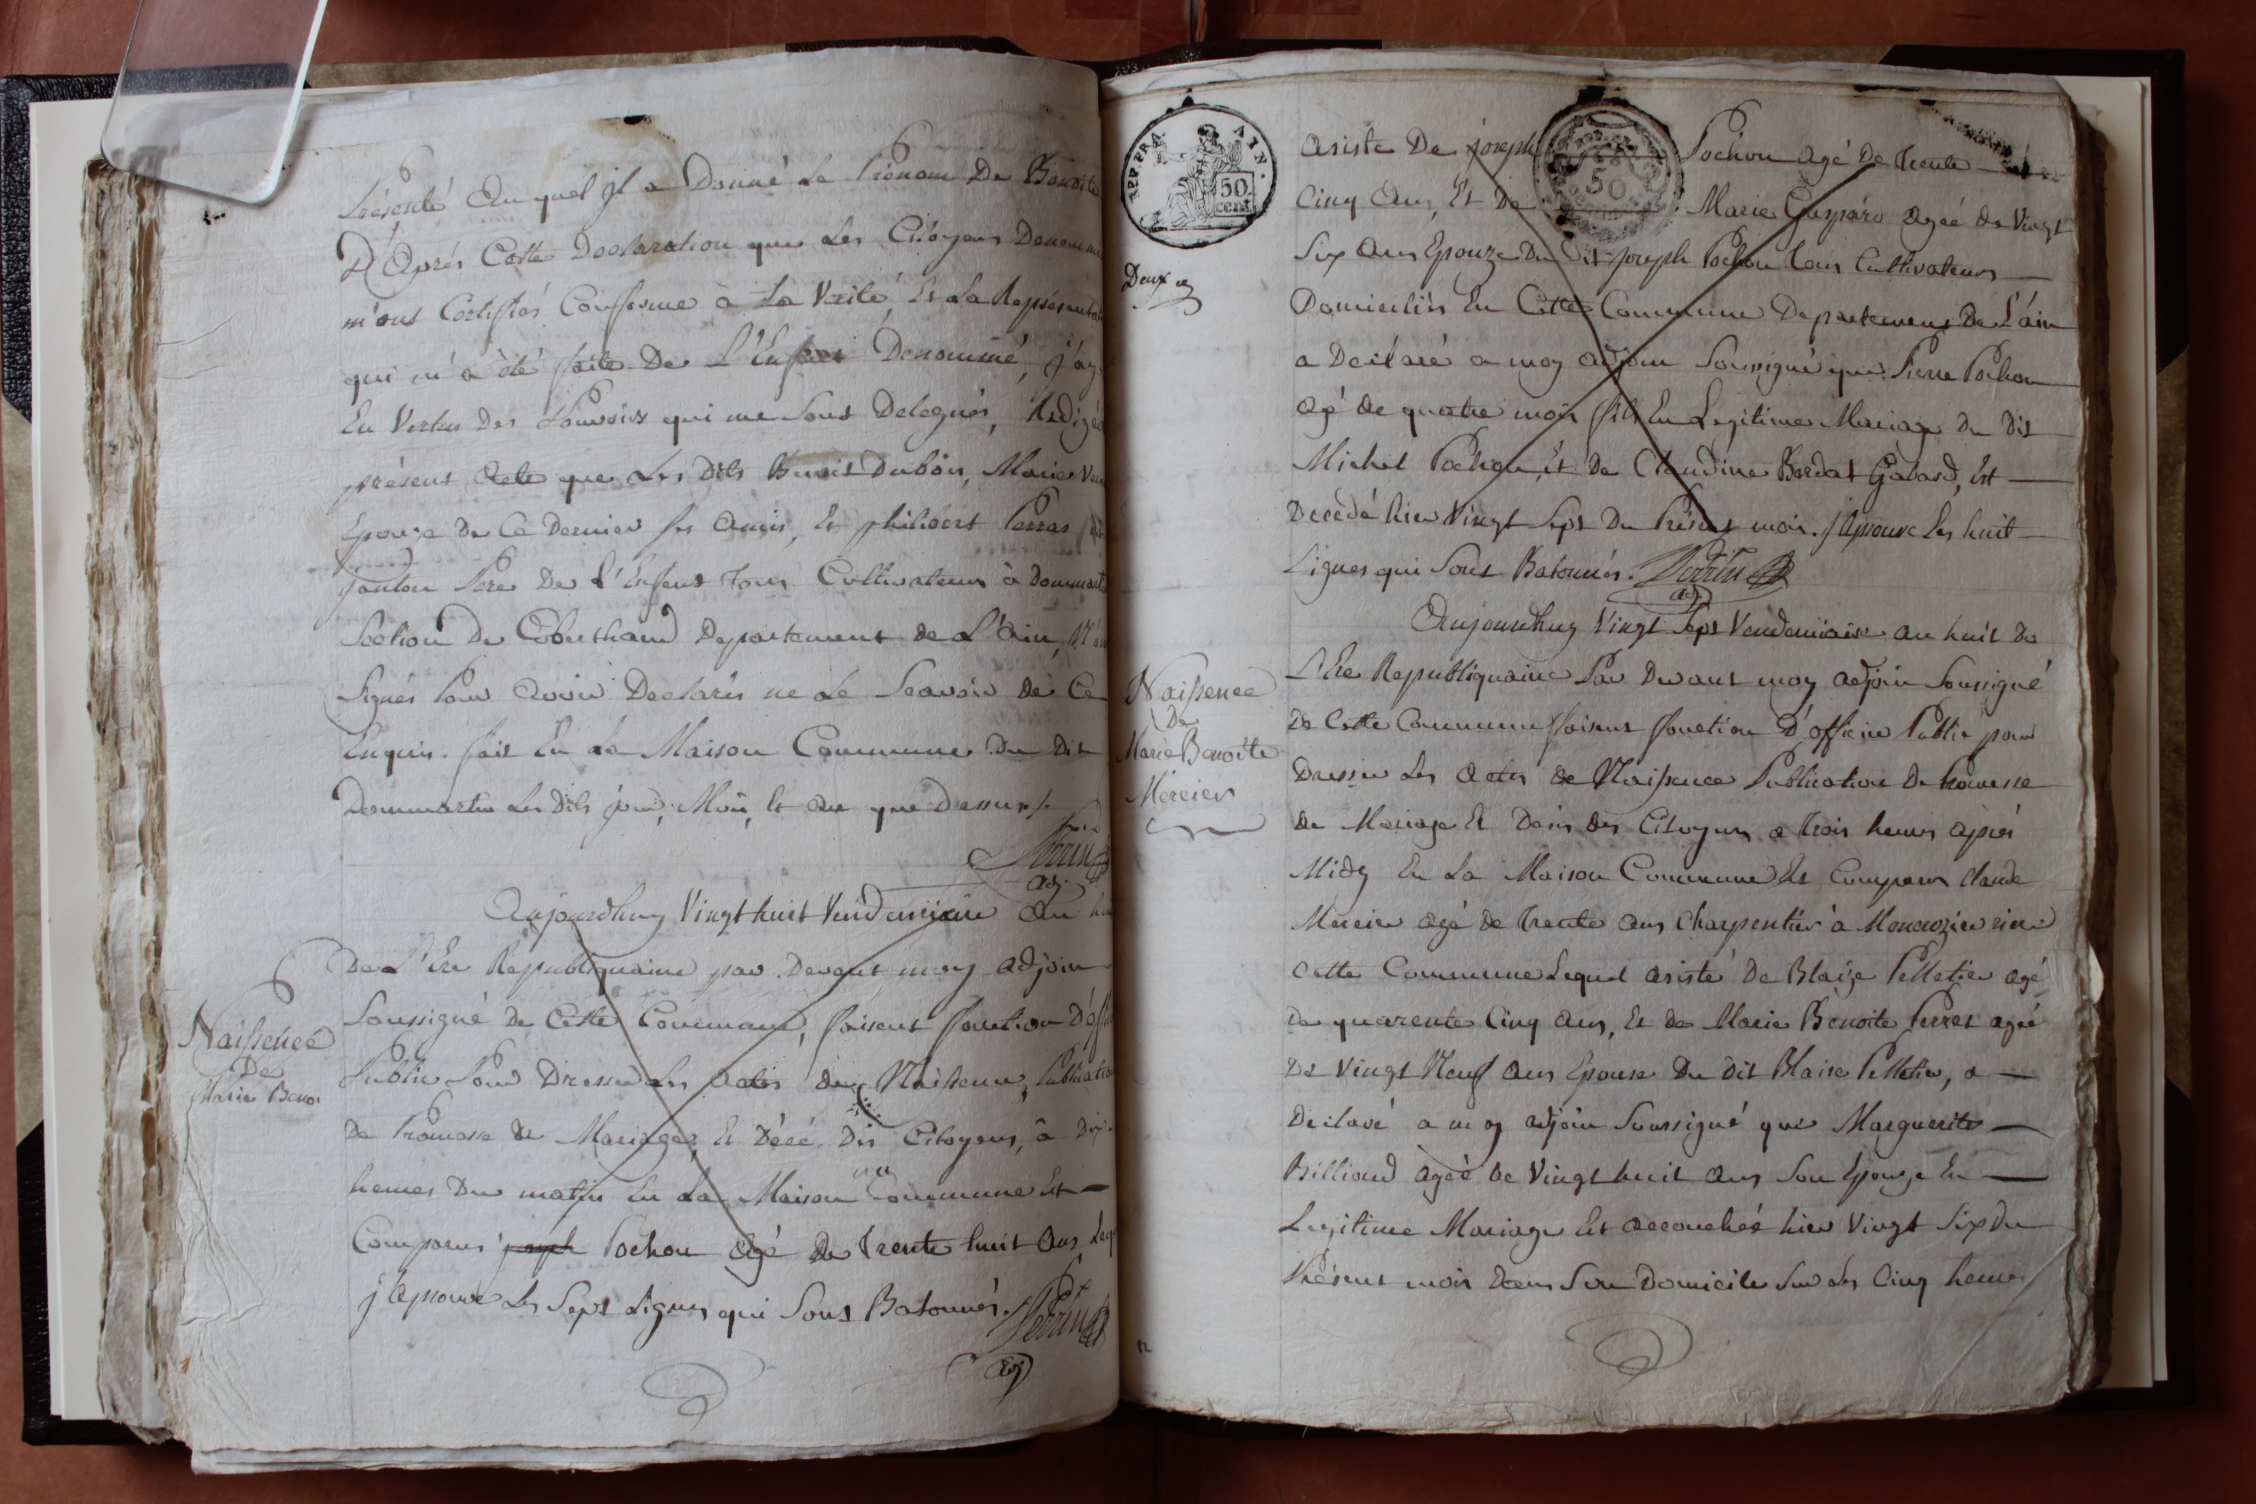 Présenté Auquel il a Donné Le Prénom De Benoite
D'Après Cette Declaration que Les Citoyens Denommé
m'ont Certifiés Conforme à La Verité Et La Représentat
qui m'a été faite De L'Enfant Denommé, J'ay
En Vertus Des Pouvoirs qui me Sont Delegués, Redigé
présent Acte que Les Dits Benoit Dubois, Marie
Epouze De Ce Dernier Ses Amis, Et philibert Perras
Père De L'Enfant Tous Cultivateurs à Dommart
Section De Departement de L'Ain,
Signés Pour Avoir Declarés ne Le Scavoir De Ce
Enquis. fait En La Maison Commune Du Dit
Dommartin Les Dits jour, Mois, Et An que Dessus
Perrin
adj.
Aujourdhuy Vingt huit Vendemiaire An
De L'Ere Republiquaine par Devant moy adjoin
Naissence
De
Marie Beno
Soussigné De Cette Commune, faisent fonction D'off
Public Pour Dresser Les Actes de Naissence, Publication
De Promesse De Mariages Et Décé Des Citoyens, à Dix
heures Du matin En La Maison Commune Est
Comparus joseph Pochon Agé De Trente huit Ans Leq
j'approuve Les Sept Lignes qui Sont Batonnés. Perrin
adj
APP. PRA. AIN.
50.
cent.
50
Deux
asisté De joseph Pochon Agé De Trente
Cinq Ans, Et De Marie Gaspard Agée De Vingt
Six Ans Epouze Du Dit joseph Pochon Tous Cultivateurs
Domiciliés En Cette Commune Departement De L'ain
a Declaré a moy adjoin Soussigné que Pierre Pochon
Agé de quatre mois fils En Legitime Mariage Du Dit
Michel Pochon, Et De Claudine Bordat Gavard, Est
Decedé hier Vingt Sept Du Présent mois. J'approuve Les huit
Lignes qui Sont Batonnés. Perrin
adj
Naissence
De
Marie Benoite
Mercier
Aujourdhuy Vingt Sept Vendemiaire an huit De
L'Ere Republiquaine Par Devant moy adjoin Soussigné
De Cette Commune faisent fonction D'officier Public pour
Dresser Les Actes de Naissence Publication De Promesse
de Mariage Et Décés des Citoyens a Trois heures après
Midy En La Maison Commune Est Comparus Claude
Mercier agé de Trente ans Charpentier à
Cette Commune Lequel asisté De Blaize Pelletier agé
De quarente Cinq Ans, Et De Marie Benoite Perret agée
De Vingt Neuf Ans Epouse Du Dit Blaise Pelletier, a
Declaré a moy adjoin Soussigné que Marguerite
Billioud agée De Vingt huit Ans Son Epouze En
Legitime Mariage Est accouchée hier Vingt Six Du
Présent mois Dans Son Domicile Sur Les Cinq heures